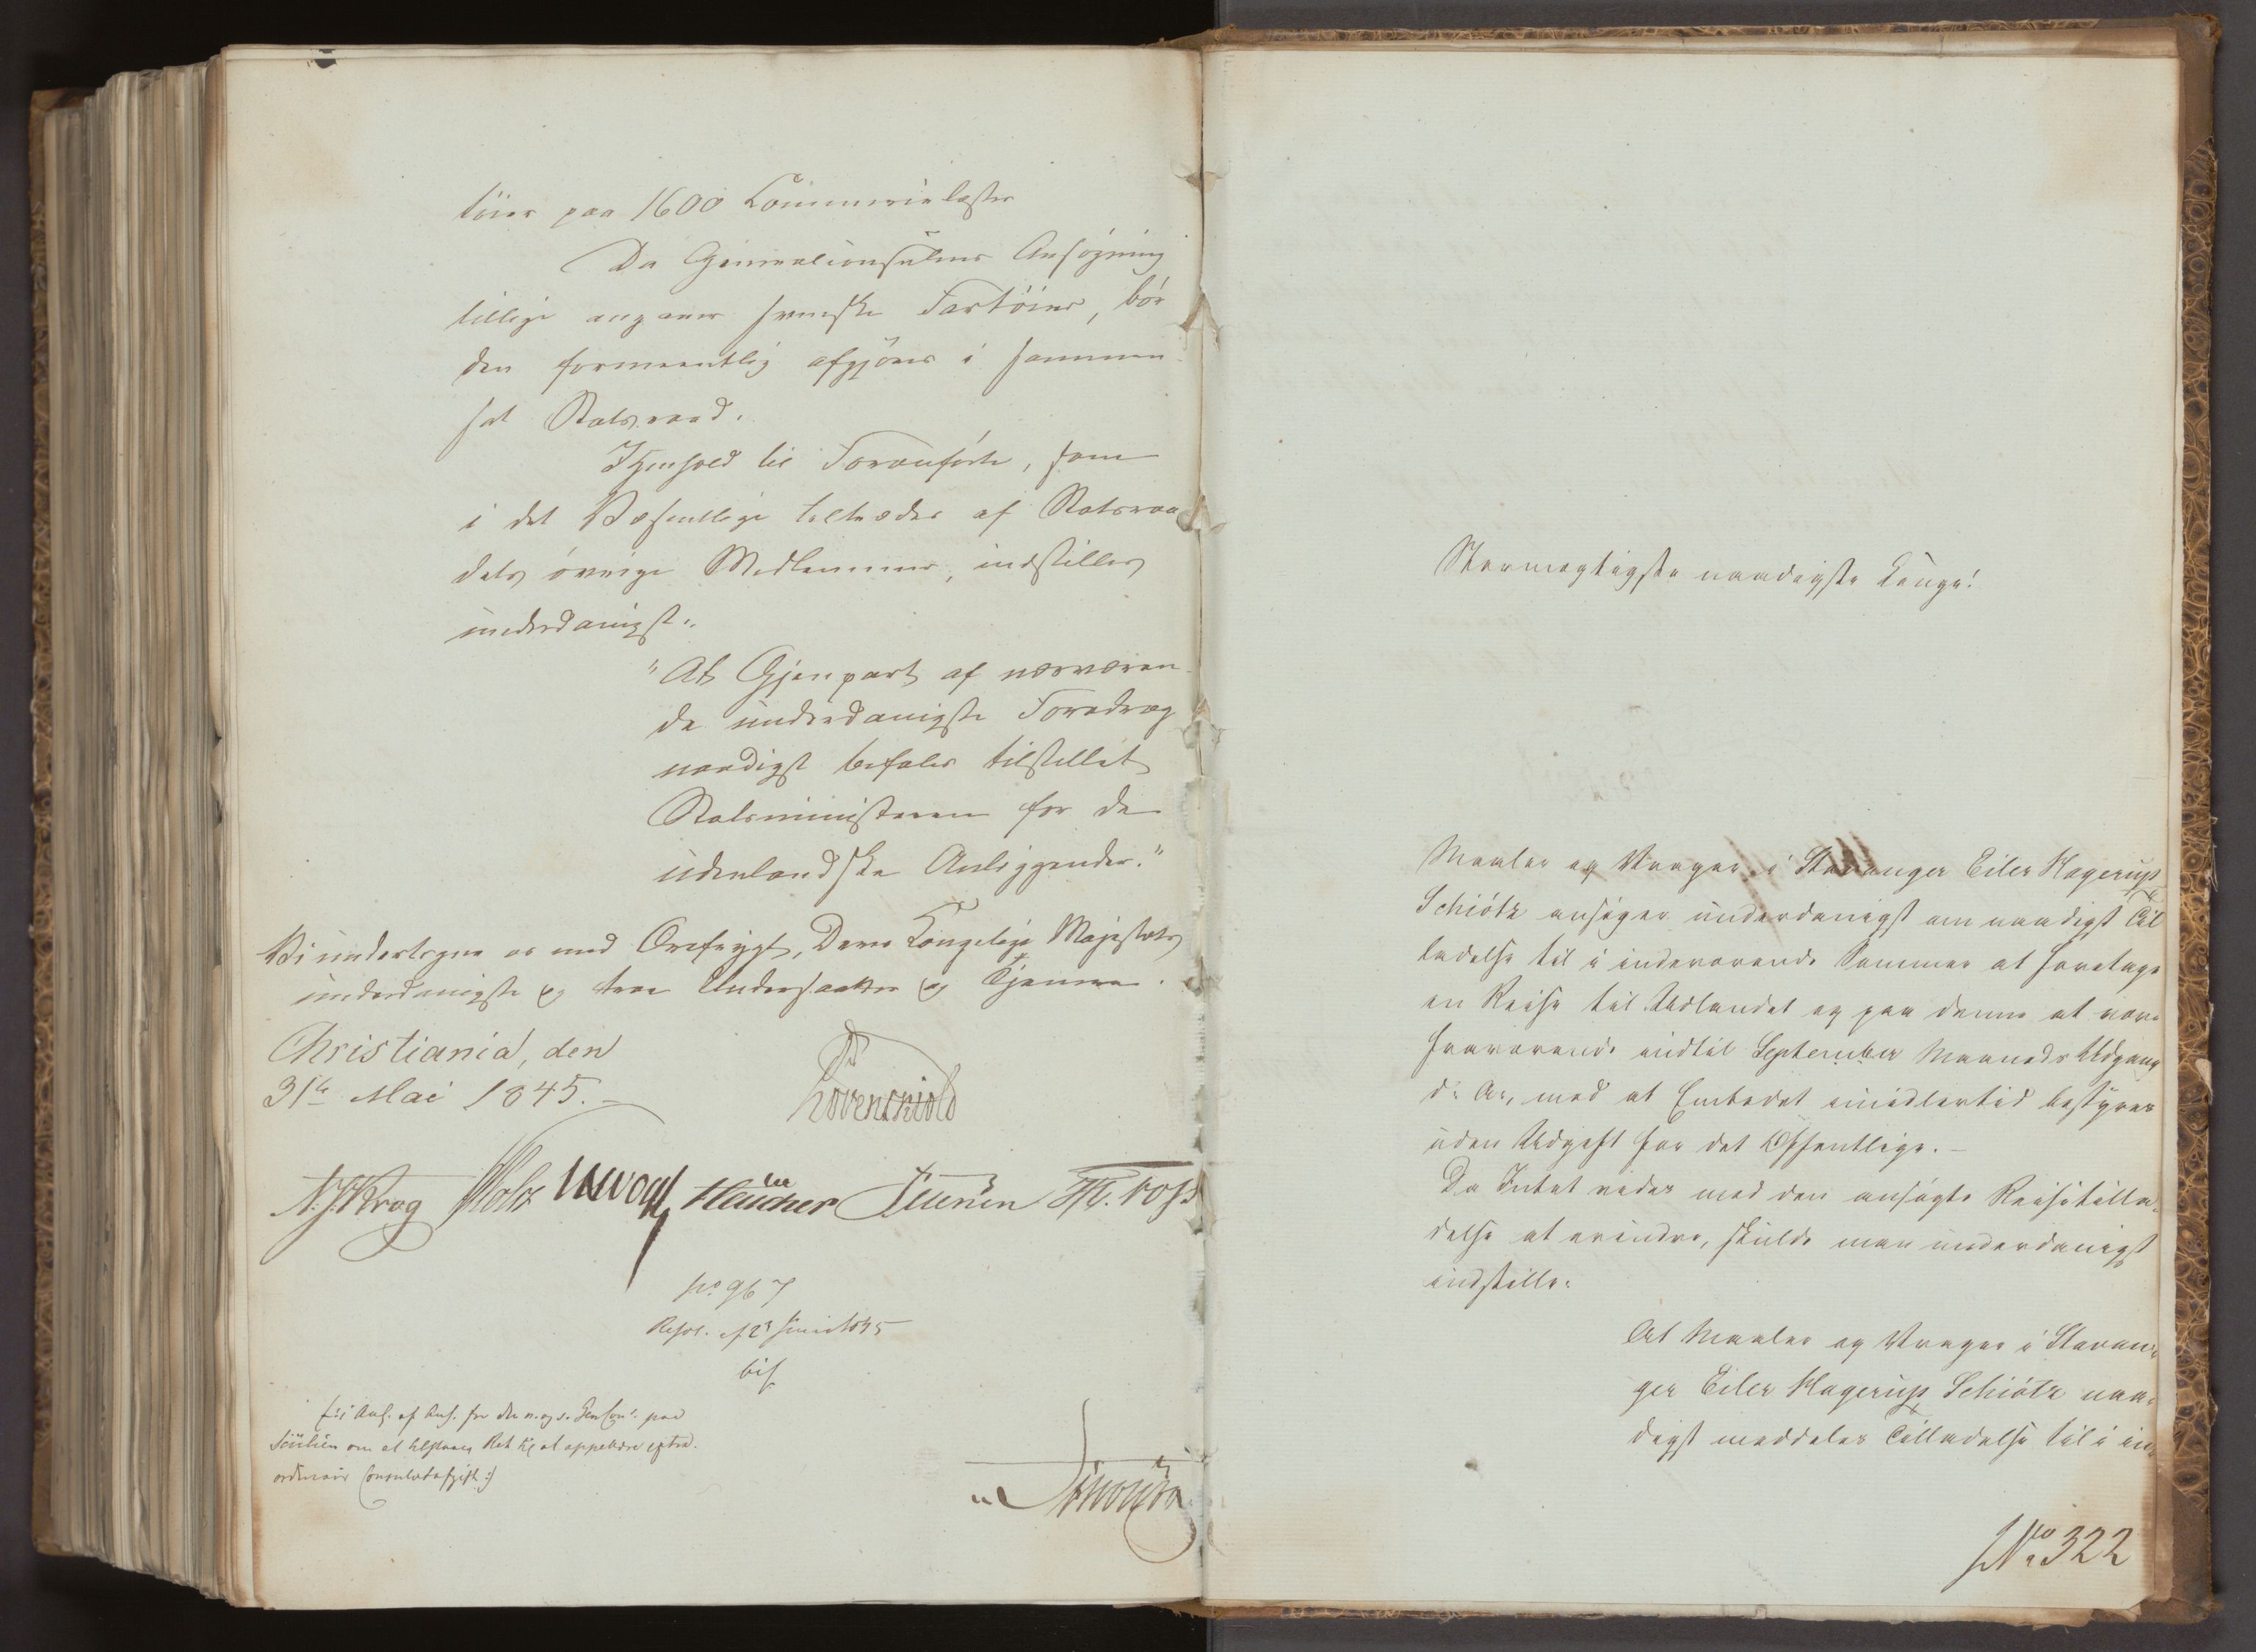 töier paa 1600 Commercelæster
Da Generalconsulens Ansøgning
tillige angaaer svenske Fartöier, bór
den formeentlig afgjöres i sammen-
sat Statsraad.
I Henhold til Foranførte, som
i det Væsentlige tiltrædes af Statsraa-
dets övrige Medlemmer, indstilles
underdanigst:
"At Gjenpart af nærværen-
de underdanigste Foredrag
naadigst befales tilstillet
Statsministeren for de
udenlandske Anliggender."
Vi undertegne os med Ærefrygt, Deres Kongelige Majestæts
underdanigste og troe Undersaatter og Tjenere.
Christiania, den
31te Mai 1845.
Lövenskiold
N. J. Krog Holst Vogt Petersen J. H. Vogt
No 967
Resol. af 25 Juni 1845
bif.
til Ans. af Ans. fra den n. og s. GenCons. paa
om at tilstaaes Ret til at oppebære extra-
ordinair Consulatafgift :/
Stormægtigste naadigste Konge!
Maaler og Vrager i Stavanger Eiler Hagerup
Schiötz ansøger underdanigst om naadigst Til-
ladelse til i indeværende Sommer at foretage
en Reise til Udlandet og paa denne at være
fraværende indtil September Maaneds Udgang
d: A:, mod at Embedet imidlertid bestyres
uden Udgift for det Offentlige.-
Da Intet vides mod den ansøgte Reisetilla-
delse at erindre, skulde man underdanigst
indstille:
At Maaler og Vrager i Stavan-
ger Eiler Hagerup Schiötz naa-
digst meddeles Tilladelse til i in-
No 322